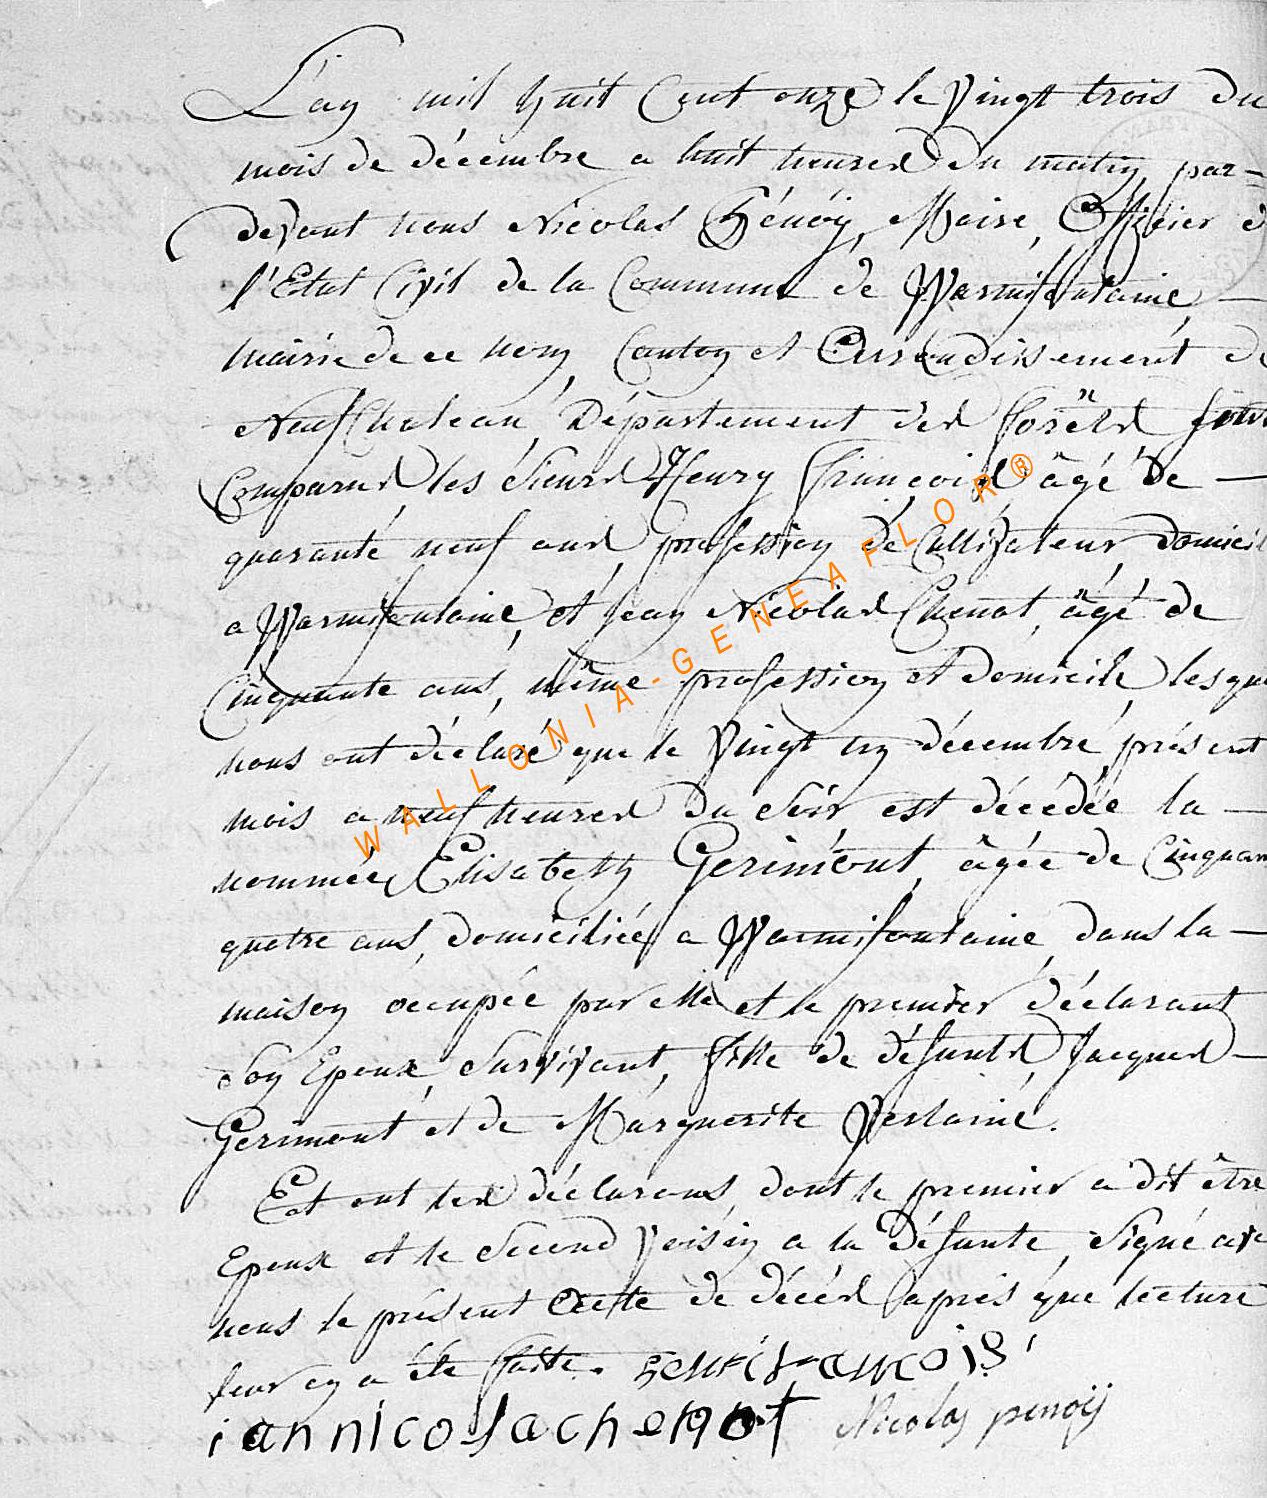 L'an mil huit Cent onze le Vingt trois du
mois de décembre a huit heures du matin, par-
devant nous Nicolas Génôij, Maire, Officier d
l'Etat Civil de la Commune de Warmifontaine,
mairie de ce nom, Canton et Arrondissement de
Neufchateau, Département des forêts sont
Comparus, les Sieurs Henry françois âgé de
quarante neuf ans, profession de Cultivateur domicil
a Warmifontaine, et Jean Nicolas Chenot, âgé de
Cinquante ans, même profession et domicile, lesque
nous ont déclaré que le Vingt un décembre, présent
mois a neuf heures du Soir est décédée la
nommée Elisabeth Gerimont, âgée de Cinquan
quatre ans, domiciliée a Warmifontaine, dans la
maison occupée par elle et le premier déclarant
Son Epoux, Survivant, fille de défunts Jacques
Gerimont et de Marguerite Verlaine.
Et ont les déclarans, dont le premier a dit être
Epoux et le Second Voisin a la défunte, Signé ave
nous le présent Acte de décés après que lecture
leur en a été faite. henri francois
jannicolachenot Nicolas penoij
WALLONIA-GENEAFLOR®